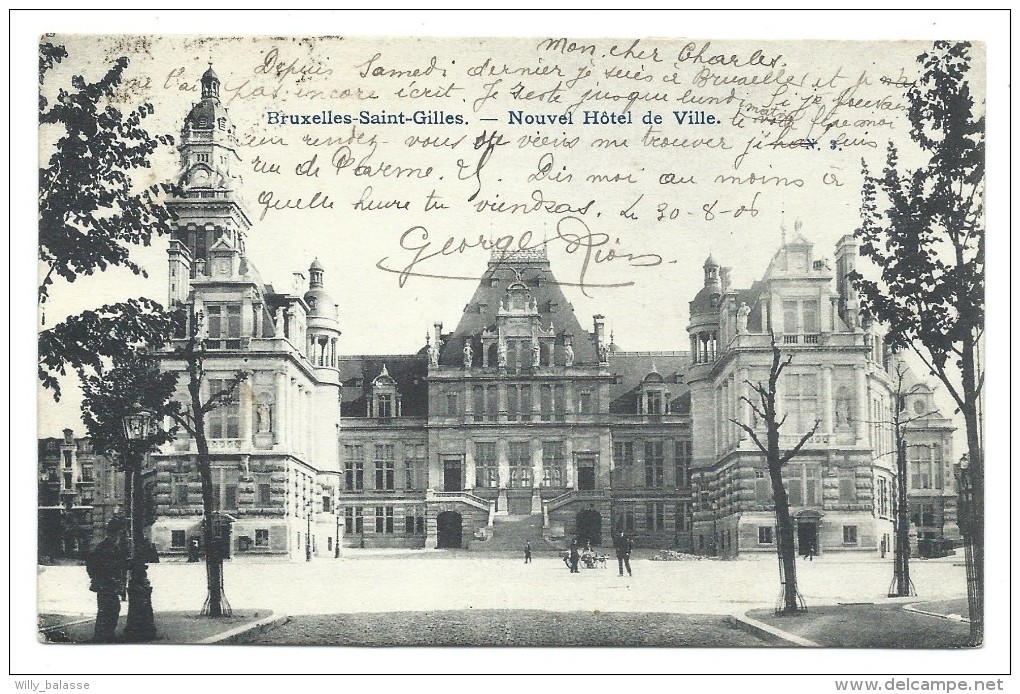 Mon cher Charles.
Depuis Samedi dernier je suis à Bruxelles et je n'ai
pas encore écrit. Je reste jusque lundi si je pouvais
Bruxelles-Saint-Gilles. — Nouvel Hôtel de Ville.
un rendez-vous ou viens me trouver je suis
N. 3.
ru de Parme. 25. Dis moi au moins à
quelle heure tu viendras. Le 30-8-06
George Rion
Willy_balasse
delcampe.net